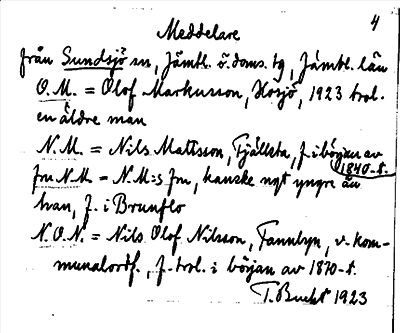 4
Meddelare
från Sundsjö sn, Jämtl. ö. doms. tg, Jämtl. län
O.M. = Olof Markusson, Hosjö, 1923 trol.
en äldre man
N.M. = Nils Mattsson, Fjällsta, f. i början av
1840-t.
fru N.M. = N.M:s fru, kanske ngt yngre än
han, f. i Brunflo
N.O.N. = Nils Olof Nilsson, Fanbyn, v. kom-
munalordf., f. trol. i början av 1870-t.
T. Bucht 1923